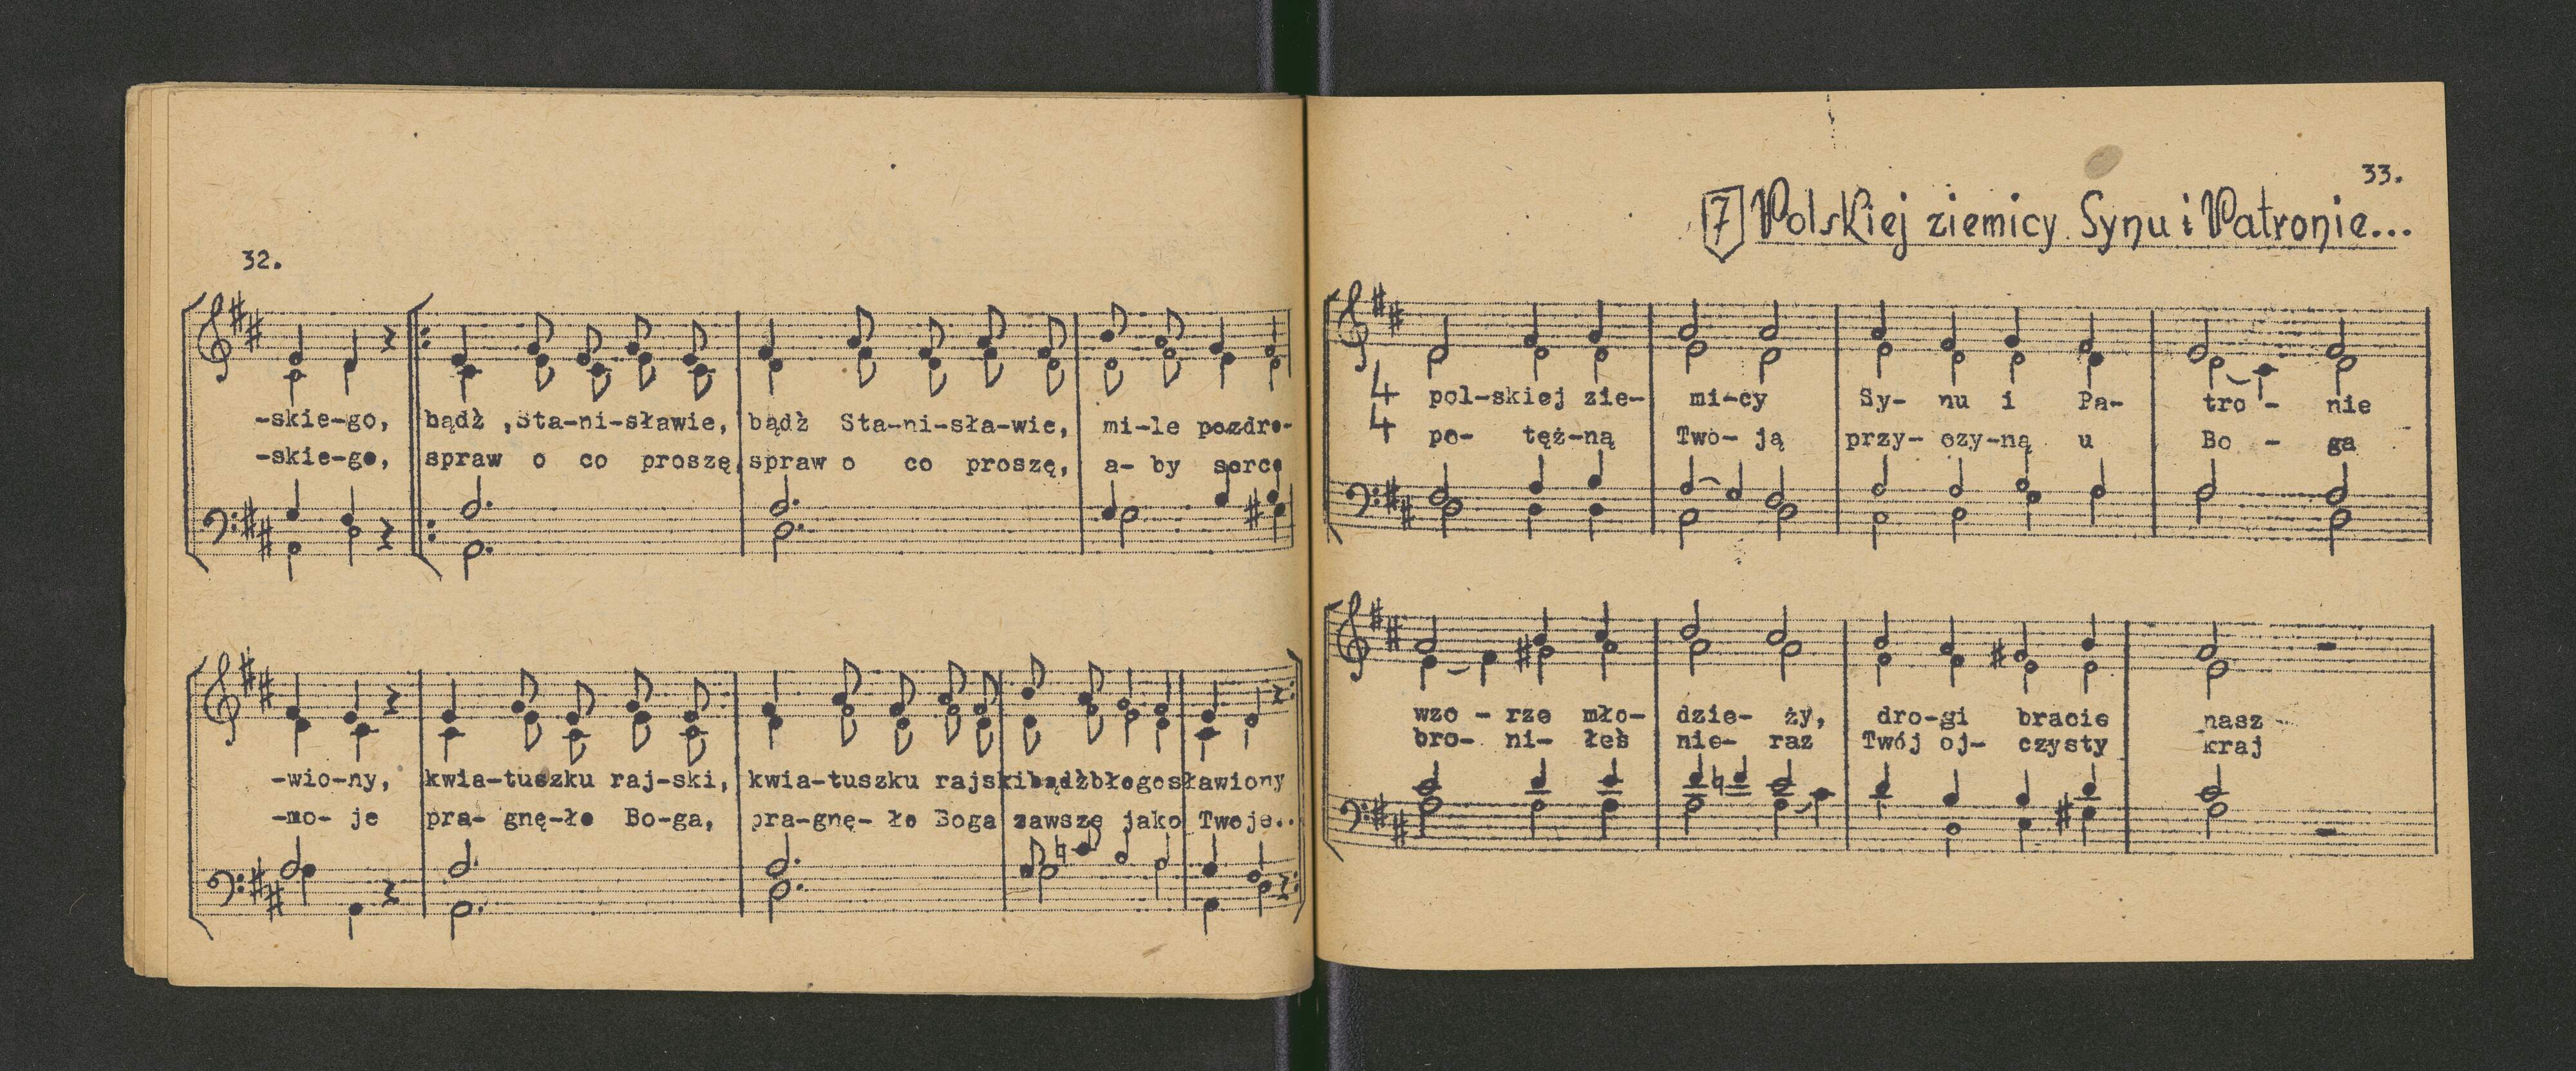 32.
-skie-go, bądź ,Sta-ni-sławie, bądź Sta-ni-sła-wie, mi-le pozdro-
-skie-go, spraw o co proszę, spraw o co proszę, a- by serce
-wio-ny, kwia-tuszku raj-ski, kwia-tuszku rajskibądźbłogosławiony
-mo- je pra- gnę-ło Bo-ga, pra-gnę- ło Boga zawsze jako Twoje..
33.
7 Polskiej ziemicy Synu i Patronie...
4
4
pol-skiej zie- mi-cy Sy- nu i Pa- tro - nie
po- tęż-ną Two- ją przy- czy-ną u Bo - ga
wzo - rze mło- dzie- ży, dro-gi bracie nasz
bro- ni- łeś nie- raz Twój oj- czysty kraj